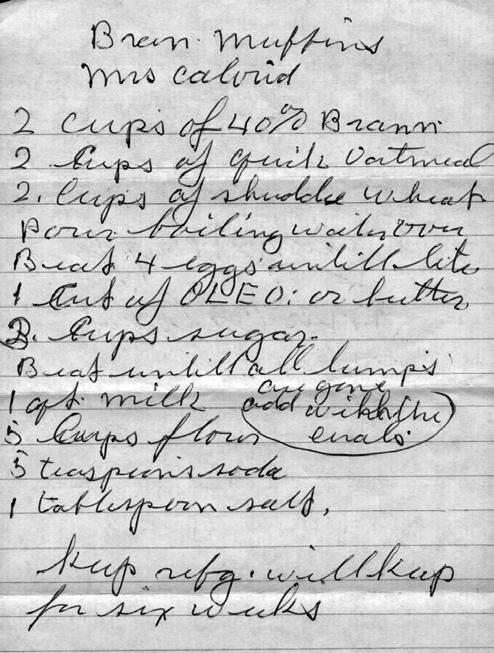 Bran muffins
Mrs Calvid
2 cups of 40% Brann
2 Cups of quik Oatmeal
2. Cups of shudde wheat
pour boiling water over
Beat 4 eggs untill lite
1 Cut of OLEO: or butter
3. Cups sugar.
Beat untill all lumps
are gone
1 qt. milk
add with the
5 Cups flour
erals.
5 teaspoons soda
1 tablespoon salt,
kup refg. will kup
for six weeks